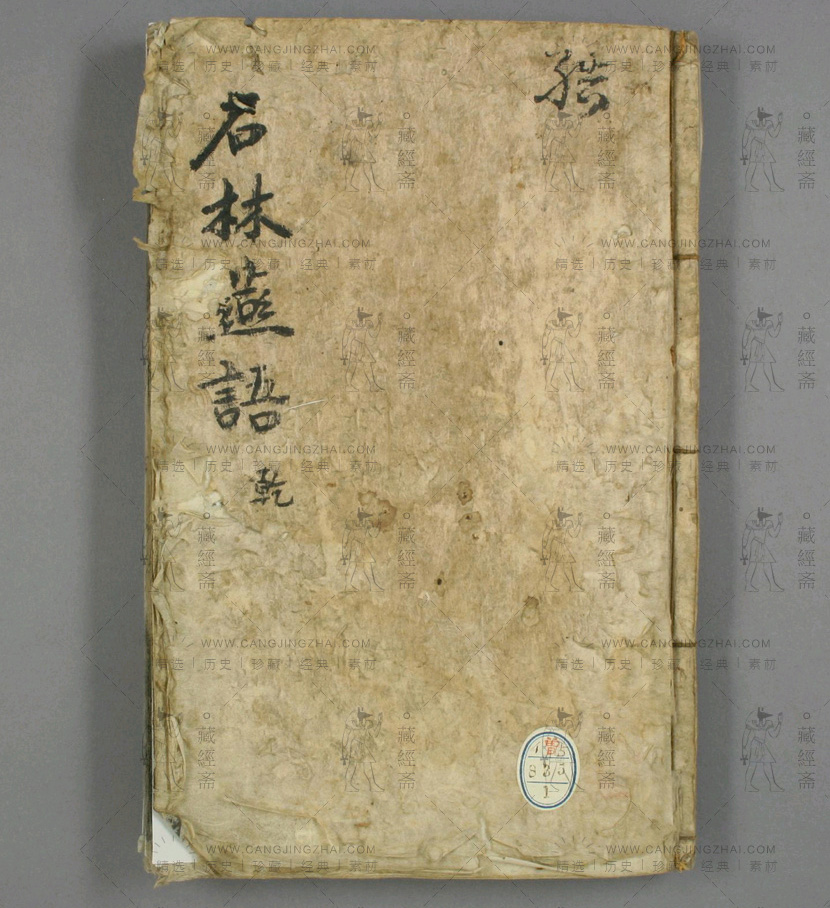 石林燕語
乾
WWW.CANGJINGZHAI.COM
精选丨历史丨珍藏丨经典丨素材
藏經斋